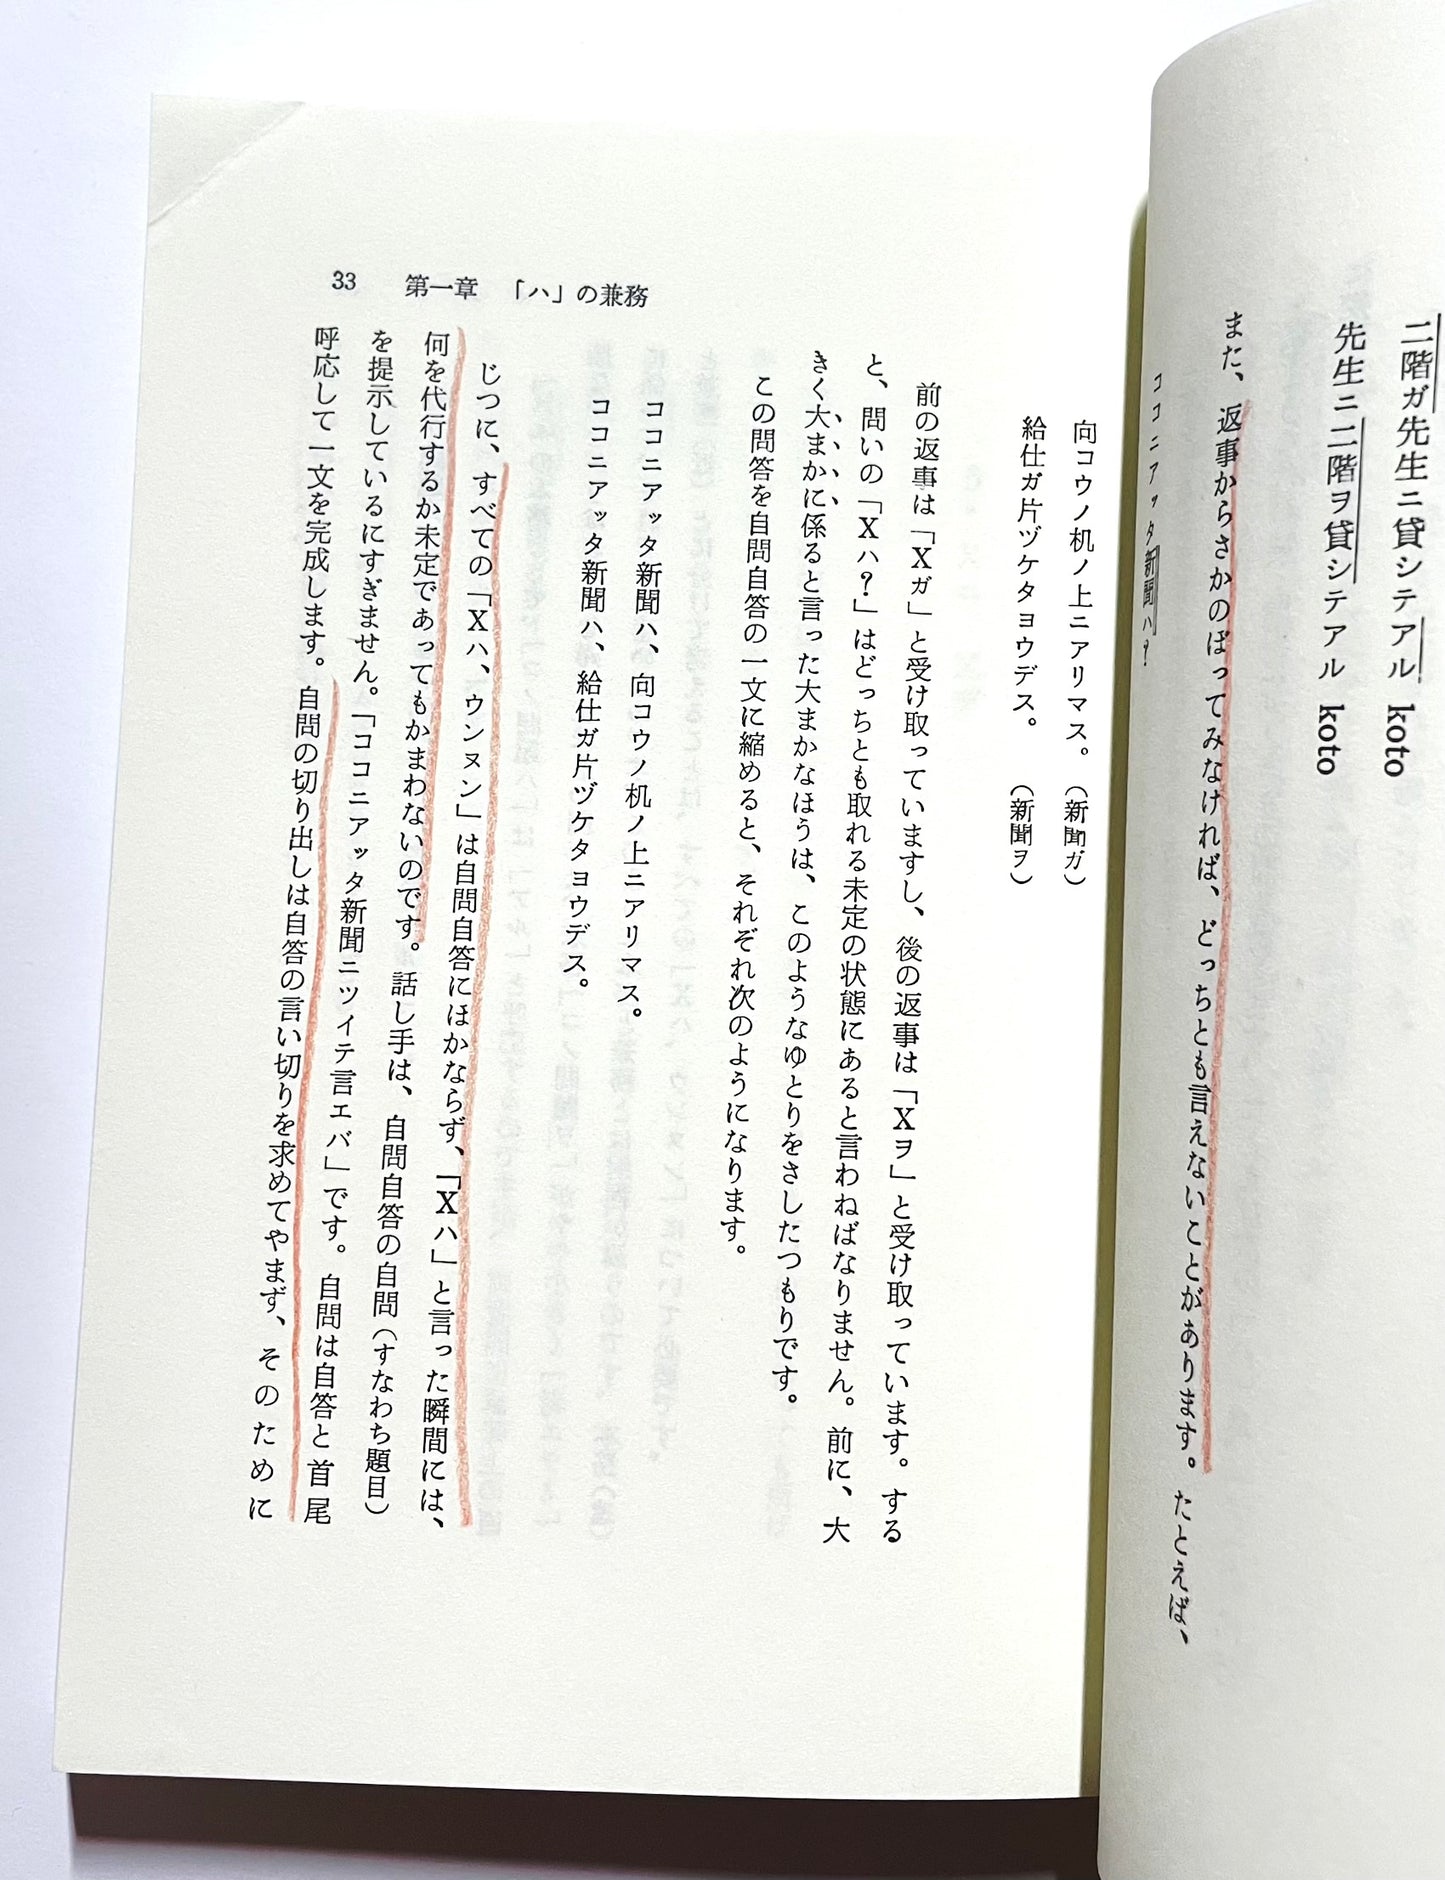 二階ガ先生ニ貸シテアル koto
先生ニ二階ヲ貸シテアル koto
また、返事からさかのぼってみなければ、どっちとも言えないことがあります。たとえば、
ココニアッタ新聞ハ?
33 第一章 「ハ」の兼務
向コウノ机ノ上ニアリマス。(新聞ガ)
給仕ガ片ヅケタヨウデス。(新聞ヲ)
前の返事は「Xガ」と受け取っていますし、後の返事は「Xヲ」と受け取っています。する
と、問いの「Xハ?」はどっちとも取れる未定の状態にあると言わねばなりません。前に、大
きく大まかに係ると言った大まかなほうは、このようなゆとりをさしたつもりです。
この問答を自問自答の一文に縮めると、それぞれ次のようになります。
ココニアッタ新聞ハ、向コウノ机ノ上ニアリマス。
ココニアッタ新聞ハ、給仕ガ片ヅケタヨウデス。
じつに、すべての「Xハ、ウンヌン」は自問自答にほかならず、「Xハ」と言った瞬間には、
何を代行するか未定であってもかまわないのです。話し手は、自問自答の自問(すなわち題目)
を提示しているにすぎません。「ココニアッタ新聞ニツイテ言エバ」です。自問は自答と首尾
呼応して一文を完成します。自問の切り出しは自答の言い切りを求めてやまず、そのために